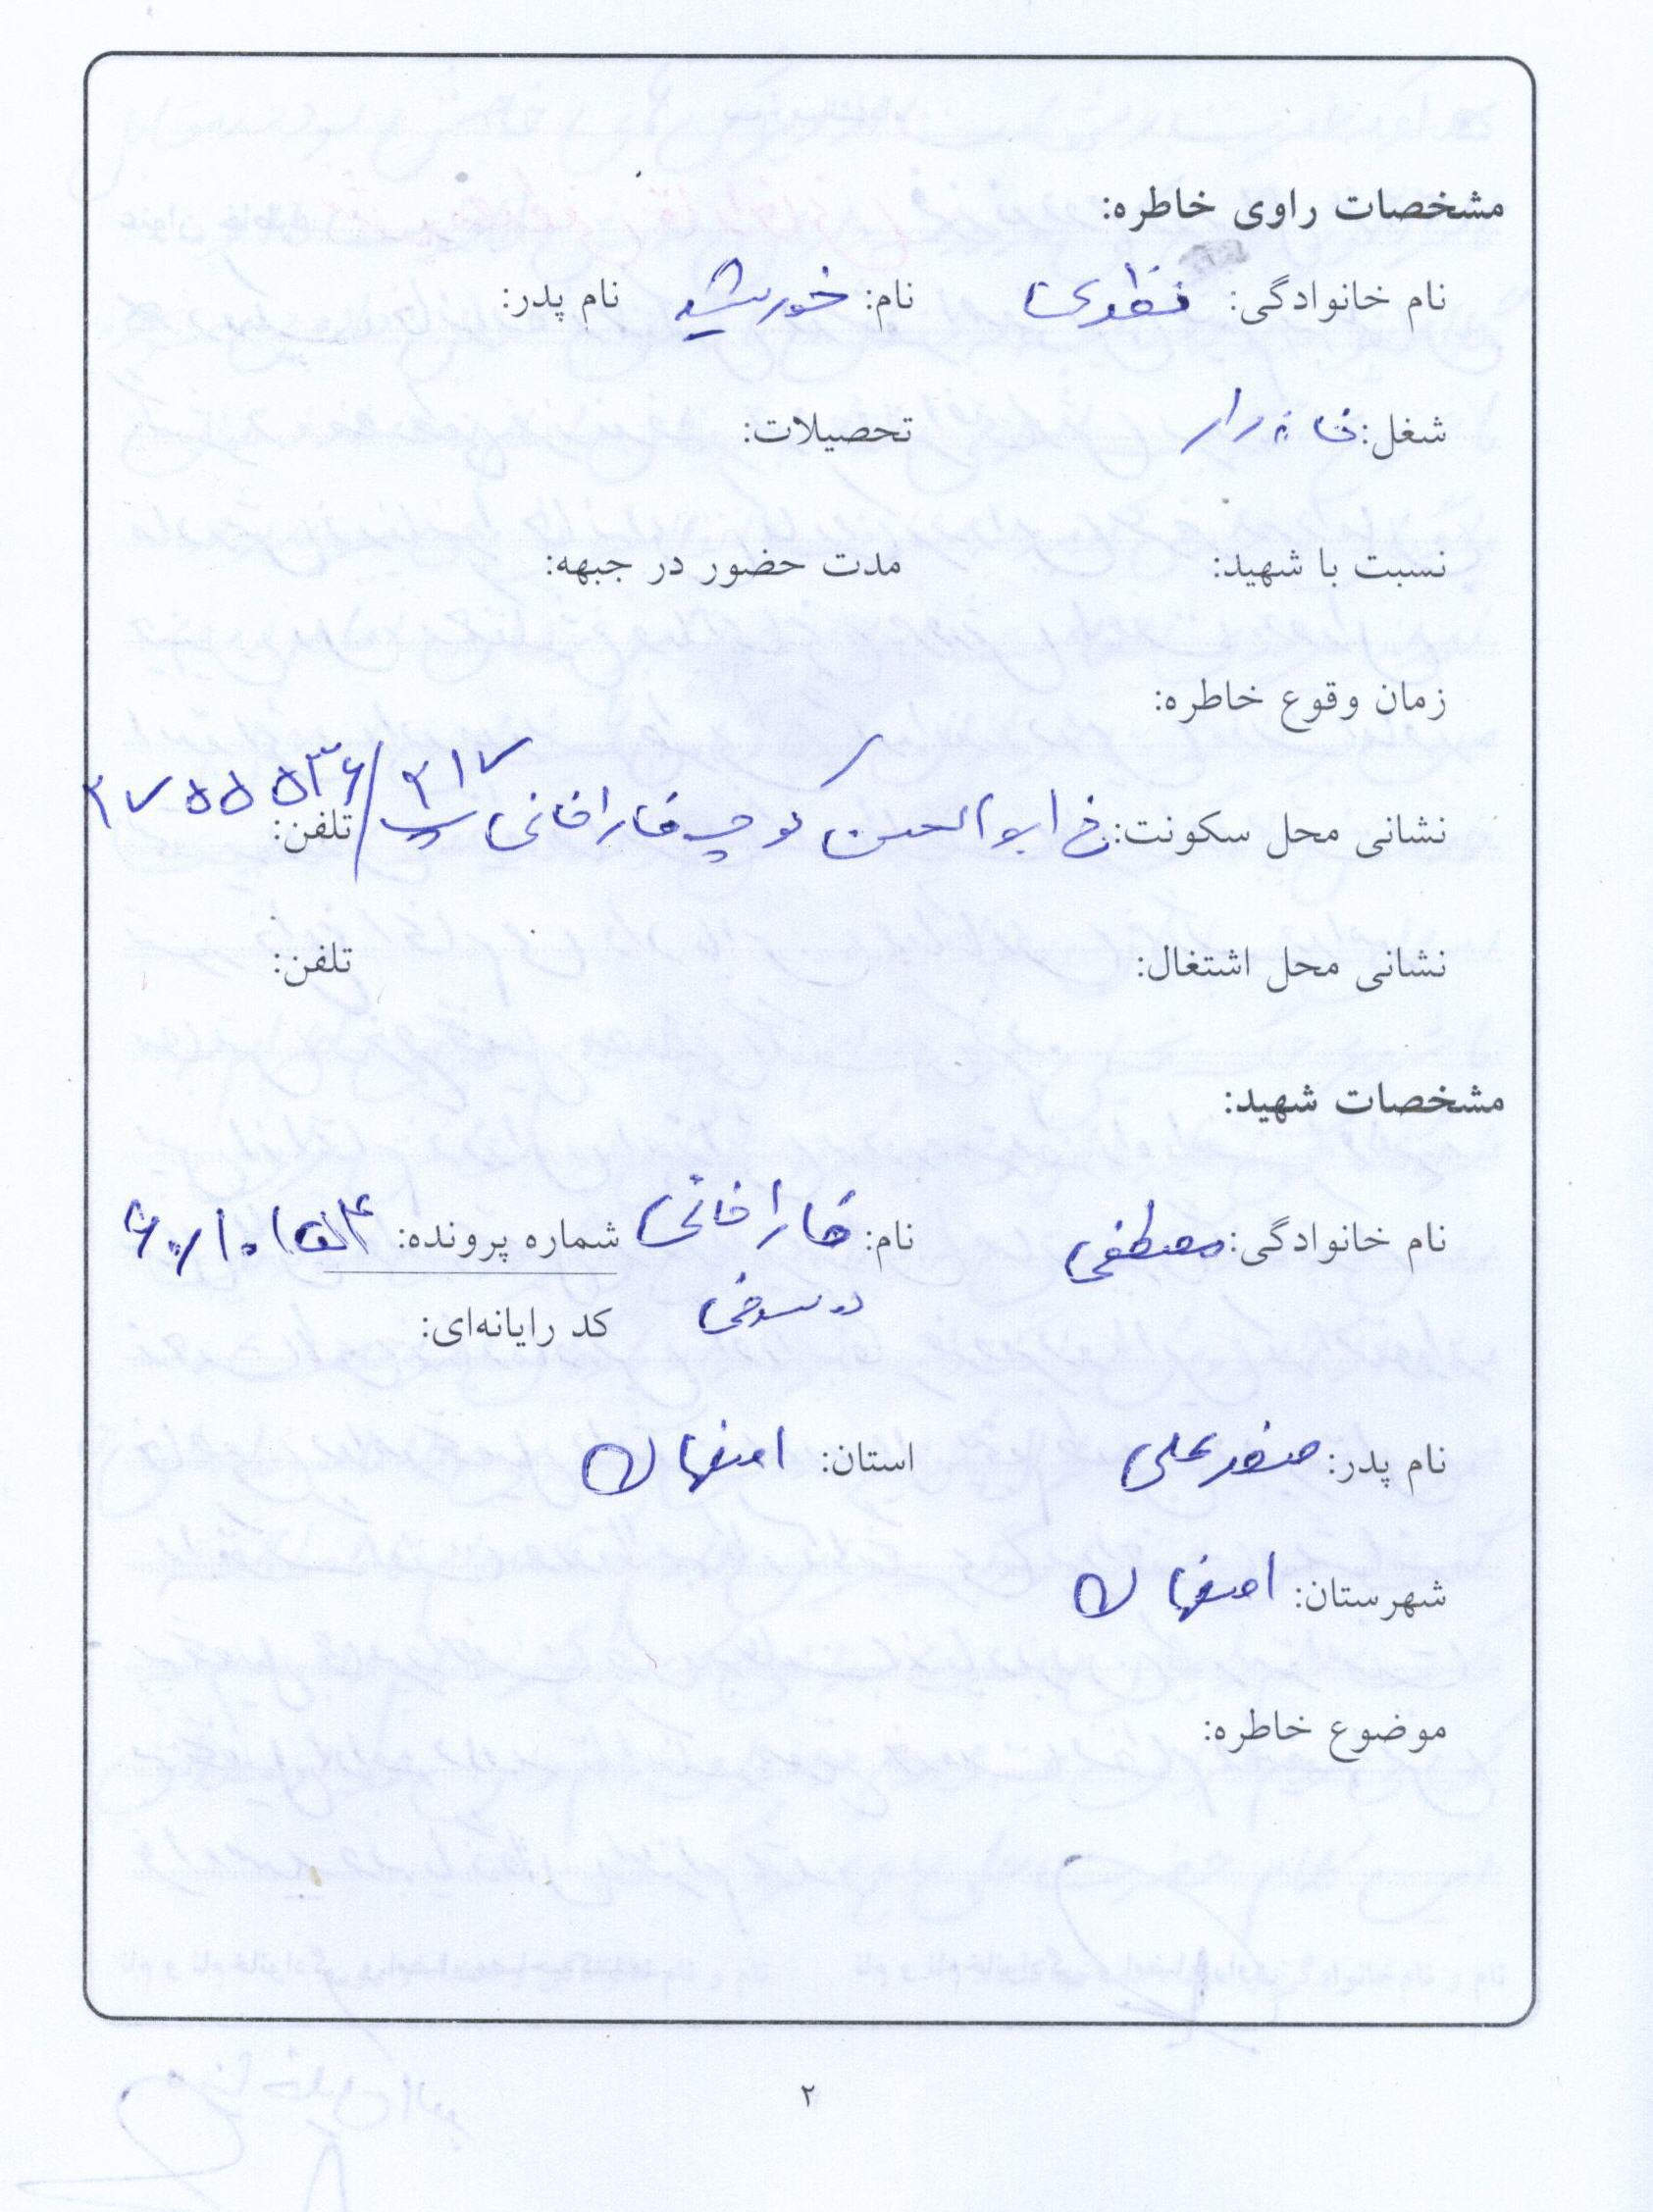 مشخصات راوی خاطره:
نام خانوادگی: فطری نام: خورشید نام پدر:
شغل: خانه دار تحصیلات:
نسبت با شهید: مدت حضور در جبهه:
زمان وقوع خاطره:
نشانی محل سکونت: خ ابوالحسن کوچه قاراخانی پ ۳۱۷ تلفن: ۳۷۵۵۵۳۶
نشانی محل اشتغال: تلفن:
مشخصات شهید:
نام خانوادگی: مصطفی نام: قاراخانی شماره پرونده:
کد رایانه‌ای:
نام پدر: صفرعلی استان: اصفهان
شهرستان: اصفهان
موضوع خاطره:
۲